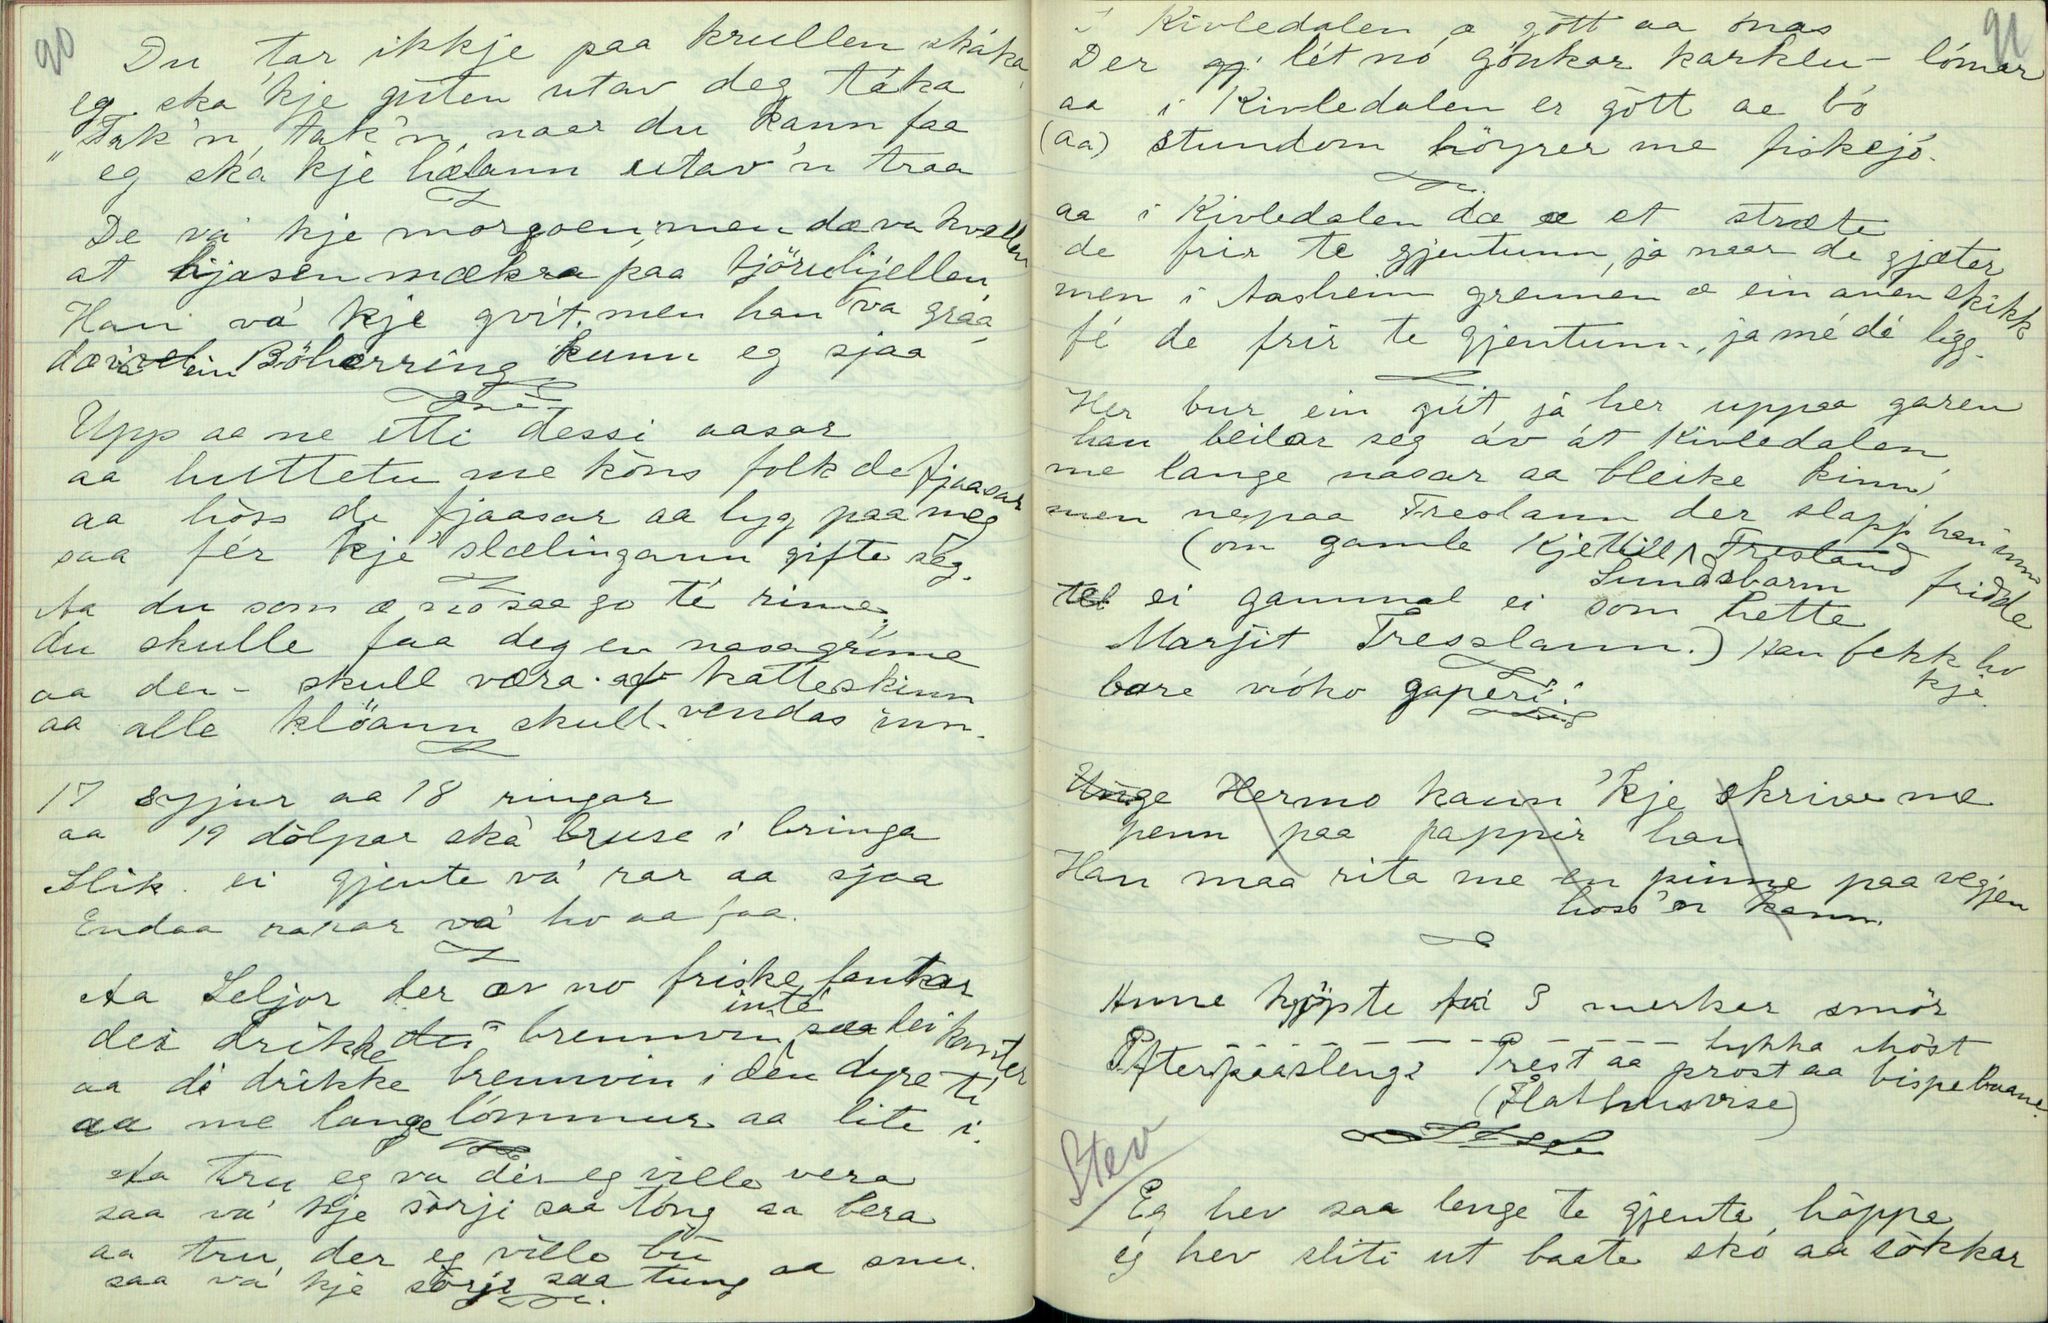 90
Du tar ikkje paa krullen skáka
eg ska 'kje guten utav deg táka
"Tak'n, tak'n, naar du kann faa
eg ska kje hælann utav'n traa
De va' kje morgoen, men dæ va kvellen
at kjasen mækra paa tjörehjellen
Han va' kje qvit, men han va graa
dæ va ein Böherring kunn eg sjaa
Upp aa ne etti dessi aasar
aa huttetu me kons folk de fjaasar
aa hoss de fjaasar aa lyg paa meg
saa fér kje slælingann gifte seg.
Aa du som æ no saa go te' rime,
du skulle faa deg en nasagrime
aa den - skull væra af katteskinn
aa alle klöann skull. vendas inn.
17 syjur aa 18 ringar
aa 19 dolpar ska bruse i bringa
Slik ei gjente va' rar aa sjaa
Endaa rarar va' ho aa faa.
Aa Seljor der er no friske fantar
dei drikke brennvin inte' saa lei kanter
aa di drikke brennvin i den dyre ti
aa me lange lommur aa lite i.
Aa tru eg va der eg ville vera
saa va' kje sorji saa tong aa bera
aa tru der eg ville bu
saa va' kje sorji saa tung aa snu.
91
I Kivledalen æ gott aa
Der lét no gönkar karklu - lómar
aa i Kivledalen er gott ae bó
(aa) stundom höyrer me fiskejó.
aa i Kivledalen dæ æ et stræte
de frir te gjentunn, ja naar de gjæter
men i Aasheim grennen æ ein anen skikk
fé de frir te gjentunn, ja mé dé ligg.
Her bur ein gut ja her uppaa garen
han beilar seg áv át Kivledalen
me lange nasar aa bleike kinn,
men nepaa Treslann der slapp han inn
(om gamle Kjetill Tresland Sundsbarm fridde
tel ei gammal ei som hette
Marjit Tresslann.) Han fekk ho kje
bare vióho gaperi!
Unge Hermo kann 'kje skrive me
penn paa pappir han
Han maa rita me en pinne paa vegjen
hoss'n kann.
Anne kjöpte fai 3 merker smör
- - - - - - lykka höst
Efterpaaslengi Prest aa prost aa bispebaane.
(Flathusvise)
Stev
Eg hev saa lenge te gjente höppa
eg hev sliti ut baate sko aa sokkar